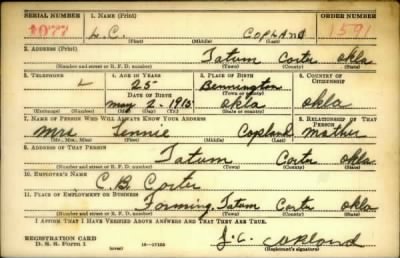 SERIAL NUMBER 1. NAME (Print) ORDER NUMBER
1077 L.C. COPLAND 1591
(First) (Middle) (Last)
2. ADDRESS (Print)
Tatum Carter okla
(Number and street or R. F. D. number) (Town) (County) (State)
3. TELEPHONE 4. AGE IN YEARS 5. PLACE OF BIRTH 6. COUNTRY OF CITIZENSHIP
25 Bennington
DATE OF BIRTH (Town or county)
may 2- 1915 okla okla
(Exchange) (No.) (Mo.) (Day) (Yr.) (State or country)
7. NAME OF PERSON WHO WILL ALWAYS KNOW YOUR ADDRESS 8. RELATIONSHIP OF THAT PERSON
mrs Jennie Copland mother
(Mr., Mrs., Miss) (First) (Middle) (Last)
9. ADDRESS OF THAT PERSON
Tatum Carter okla.
(Number and street or R. F. D. number) (Town) (County) (State)
10. EMPLOYER'S NAME
C.B. Carter
11. PLACE OF EMPLOYMENT OR BUSINESS
Farming. Tatum Carter okla
(Number and street or R. F. D. number) (Town) (County) (State)
I AFFIRM THAT I HAVE VERIFIED ABOVE ANSWERS AND THAT THEY ARE TRUE.
REGISTRATION CARD
D. S. S. Form 1 (over) 16-17105 (Registrant's signature)
copland